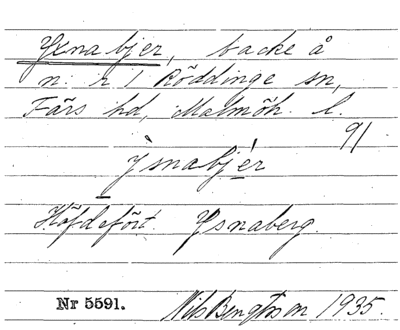 Yxnabjer, backe å
n: r 1 Röddinge sn,
Färs hd, Malmöh. l.
91
ỳsnabjér
Höfdefört. Ysnaberg.
Nr 5591. Nils Bengtsson 1935.